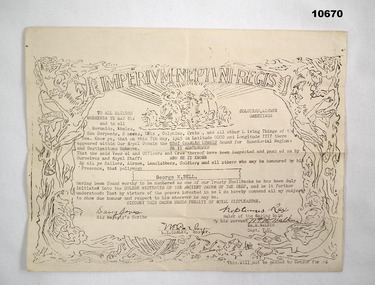 10670
IMPERIVM·NEPTVNI·REGIS
TO ALL SAILORS
WHEREVER YE MAY BE
and to all
GREETINGS
Mermaids, Whales,
Sea Serpents, Sharks, Eels, Dolphins, Crabs, and all other Living Things of the
Sea. Know ye, that on this 7th day, 1945 in Latitude 0000 and Longitude
appeared within Our Royal Domain the bound for Equatorial Regions
and
BE IT REMEMBERED
That the said Vessel and Officers and Crew thereof have been inspected and passed on by
Ourselves and Royal Staff.
AND BE IT KNOWN
By all ye Sailors, Marines, Landlubbers, Soldiers and all others who may be honoured by his
Presence, that pollywog
George H. BELL.
having been found worthy to be numbered as one of our Trusty Shellbacks he has been duly
initiated into the SOLEMN MYSTERIES OF THE ANCIENT ORDER OF THE DEEP, and be it further
understood That by virtue of the powers invested in me I do hereby command all my subjects
to show due honour and respect to him wherever he may be.
DISOBEY THIS ORDER UNDER PENALTY OF ROYAL DISPLEASURE.
Davy Jones
His Majesty's Scribe
Neptunus Rex
Ruler of the Raging Main
by his servant